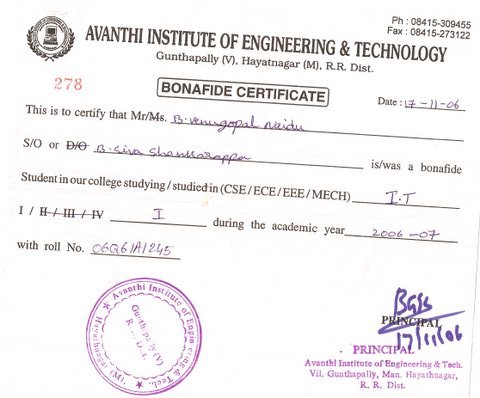 Ph : 08415-309455
Fax : 08415-273122
AVANTHI INSTITUTE OF ENGINEERING & TECHNOLOGY
Gunthapally (V), Hayatnagar (M), R.R. Dist.
278
BONAFIDE CERTIFICATE
Date : 17-11-06
This is to certify that Mr/Ms. B. Venugopal Naidu
S/O or D/O B. Siva Shankarappa is/was a bonafide
Student in our college studying / studied in (CSE / ECE / EEE / MECH) I.T
I / II / III / IV I during the academic year 2006-07
with roll No. 06Q61A1245
Avanthi Institute of Engineering & Tech. Hayathnagar (M).
Gunthapally (V)
R. R. Dist.
PRINCIPAL
17/11/06
PRINCIPAL
Avanthi Institute of Engineering & Tech.
Vil. Gunthapally, Man. Hayathnagar,
R. R. Dist.